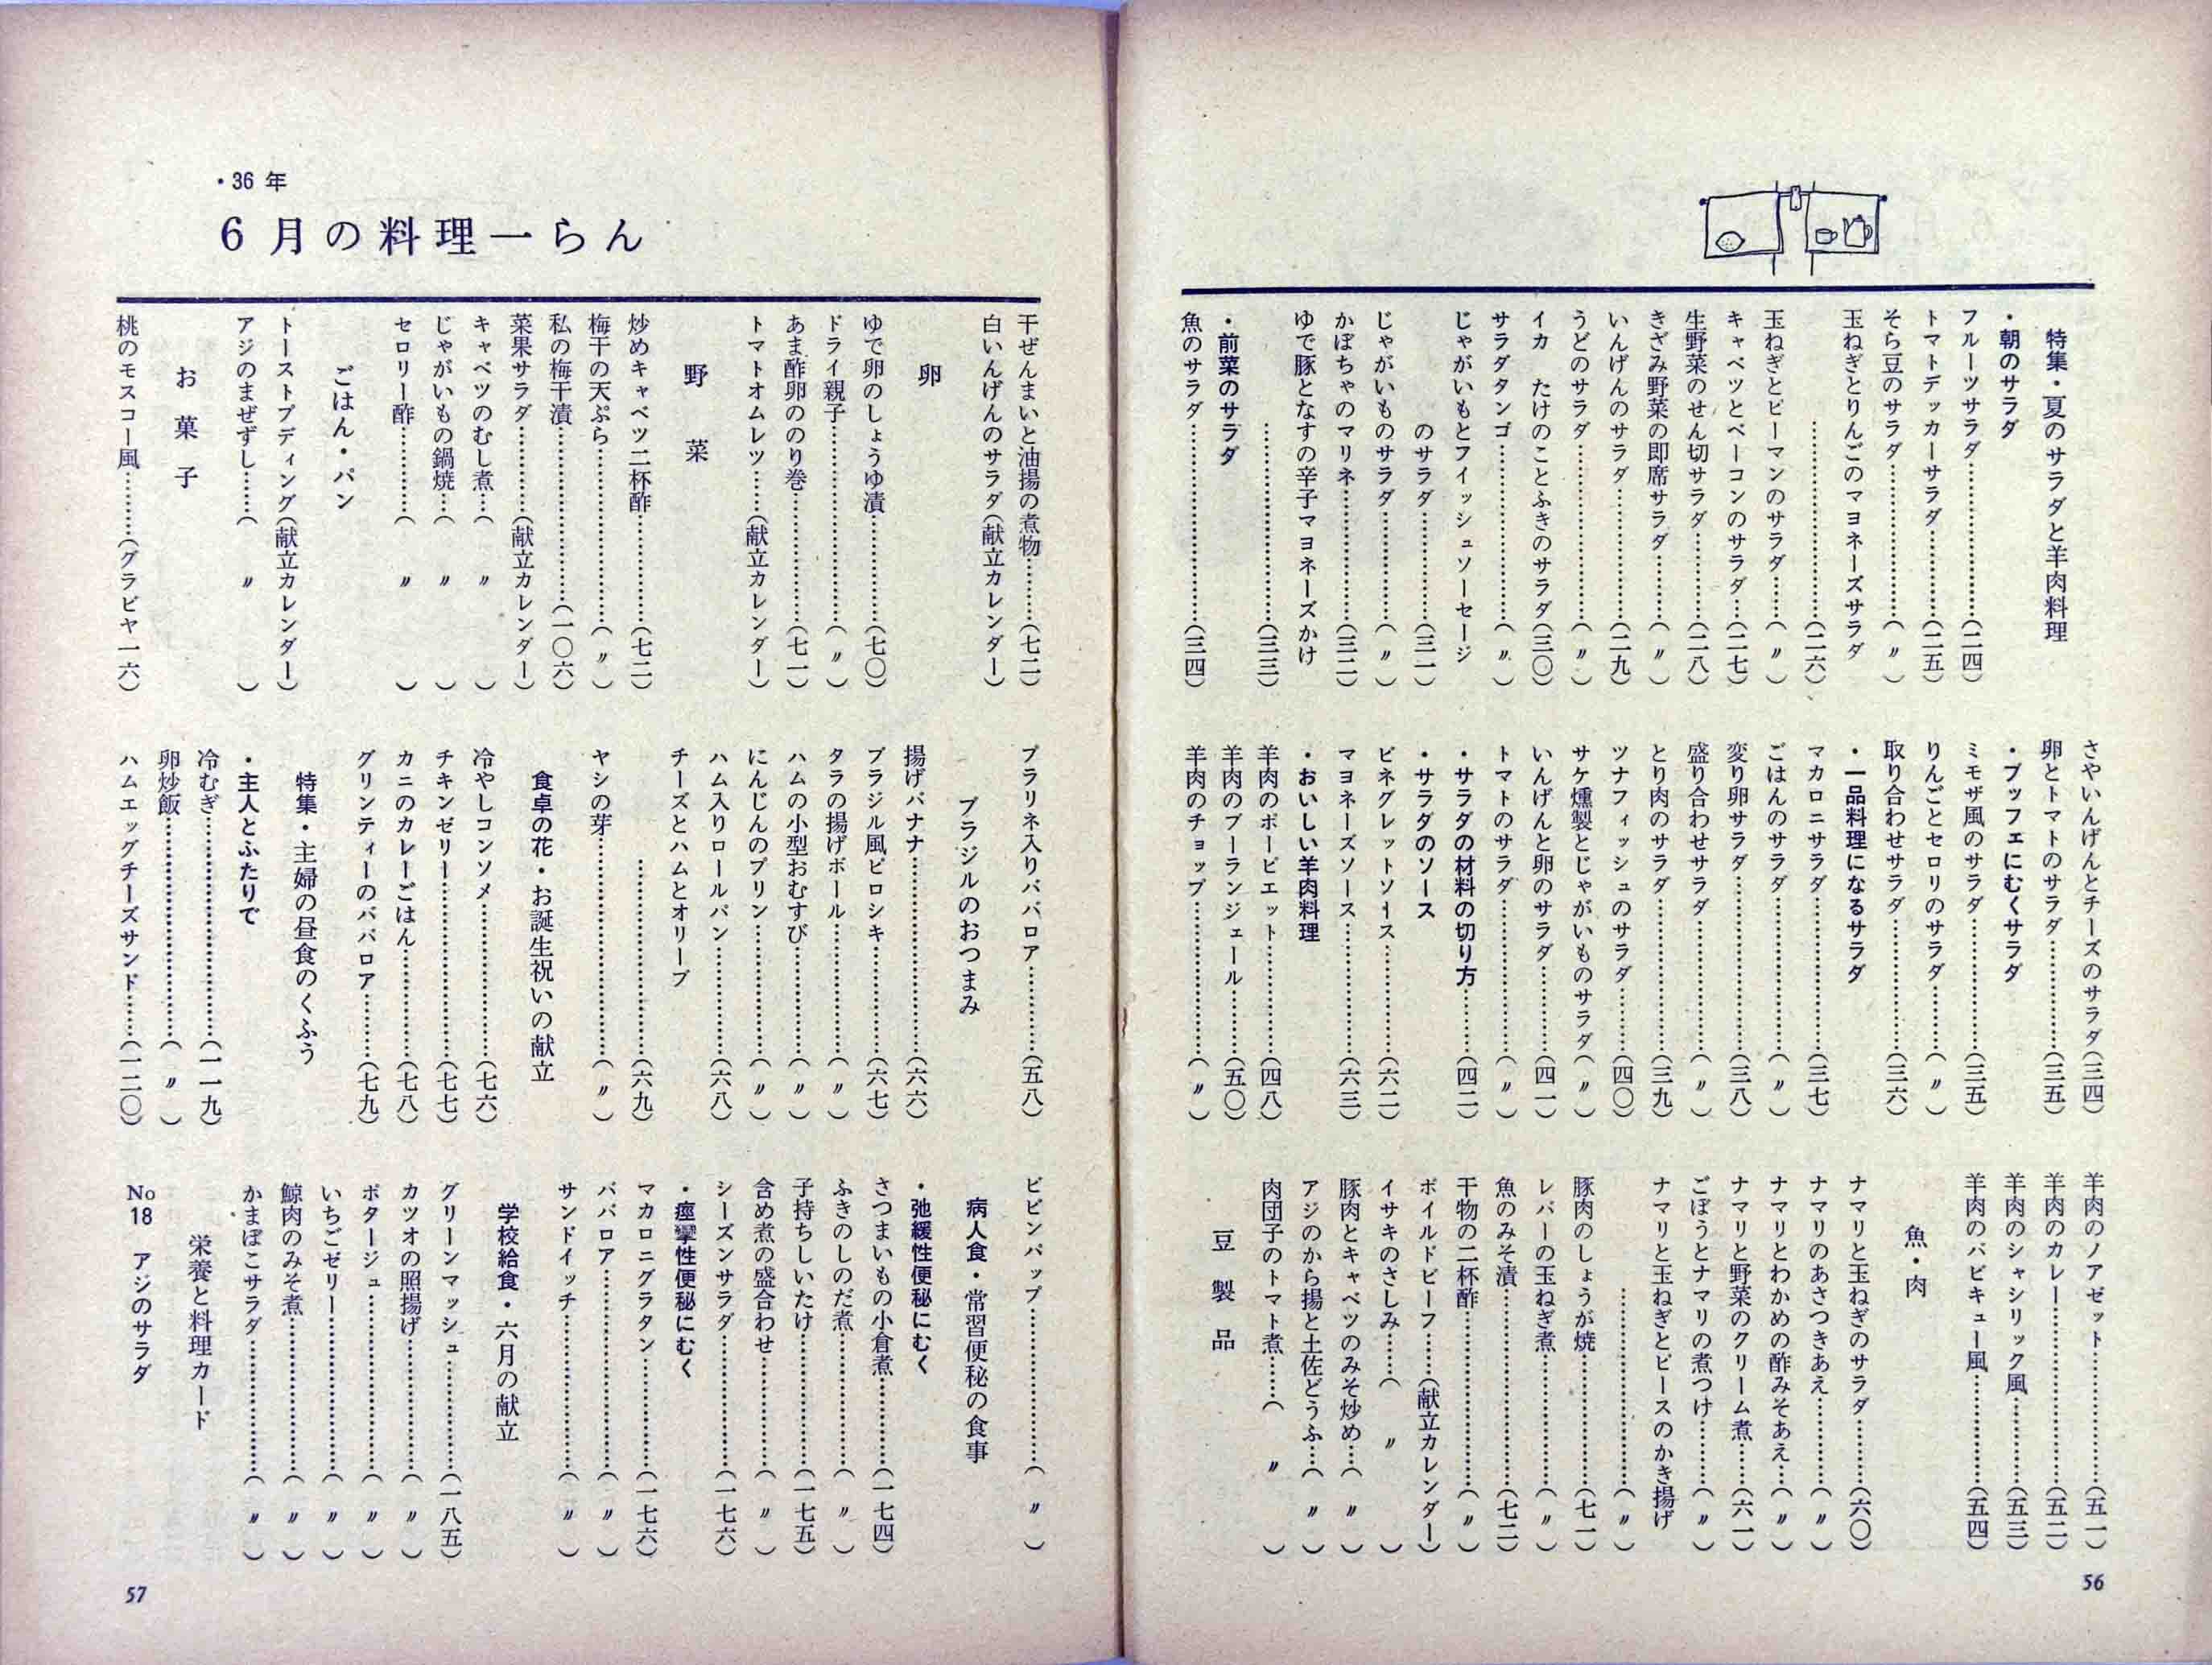 ・36年
6月の料理一らん
特集・夏のサラダと羊肉料理
・朝のサラダ
フルーツサラダ……………(二四)
トマトデッカーサラダ………(二五)
そら豆のサラダ……………(〃)
玉ねぎとりんごのマヨネーズサラダ
……………(二六)
玉ねぎとピーマンのサラダ……(〃)
キャベツとベーコンのサラダ…(二七)
生野菜のせん切サラダ………(二八)
きざみ野菜の即席サラダ……(〃)
いんげんのサラダ……………(二九)
うどのサラダ………………(〃)
イカ たけのことふきのサラダ(三〇)
サラダタンゴ………………(〃)
じゃがいもとフイッシュソーセージ
のサラダ……………(三一)
じゃがいものサラダ…………(〃)
かぼちゃのマリネ……………(三二)
ゆで豚となすの辛子マヨネーズかけ
……………(三三)
・前菜のサラダ
魚のサラダ…………………(三四)
さやいんげんとチーズのサラダ(三四)
卵とトマトのサラダ…………(三五)
・ブッフェにむくサラダ
ミモザ風のサラダ……………(三五)
りんごとセロリのサラダ……(〃)
取り合わせサラダ……………(三六)
・一品料理になるサラダ
マカロニサラダ……………(三七)
ごはんのサラダ……………(〃)
変り卵サラダ………………(三八)
盛り合わせサラダ……………(〃)
とり肉のサラダ……………(三九)
ツナフィッシュのサラダ……(四〇)
サケ燻製とじゃがいものサラダ(〃)
いんげんと卵のサラダ………(四一)
トマトのサラダ……………(〃)
・サラダの材料の切り方……(四二)
・サラダのソース
ビネグレットソース…………(六二)
マヨネーズソース……………(六三)
・おいしい羊肉料理
羊肉のポーピエット…………(四八)
羊肉のブーランジェール……(五〇)
羊肉のチョップ……………(〃)
羊肉のノアゼット……………(五一)
羊肉のカレー………………(五二)
羊肉のシャシリック風………(五三)
羊肉のバビキュー風…………(五四)
魚・肉
ナマリと玉ねぎのサラダ……(六〇)
ナマリのあさつきあえ………(〃)
ナマリとわかめの酢みそあえ…(〃)
ナマリと野菜のクリーム煮…(六一)
ごぼうとナマリの煮つけ……(〃)
ナマリと玉ねぎとピースのかき揚げ
……………(〃)
豚肉のしょうが焼……………(七一)
レバーの玉ねぎ煮……………(〃)
魚のみそ漬…………………(七二)
干物の二杯酢………………(〃)
ボイルドビーフ……(献立カレンダー)
イサキのさしみ……(〃)
豚肉とキャベツのみそ炒め…(〃)
アジのから揚と土佐どうふ…(〃)
肉団子のトマト煮……(〃)
豆製品
56
干ぜんまいと油揚の煮物……(七二)
白いんげんのサラダ(献立カレンダー)
卵
ゆで卵のしょうゆ漬…………(七〇)
ドライ親子…………………(〃)
あま酢卵ののり巻……………(七一)
トマトオムレツ……(献立カレンダー)
野菜
炒めキャベツ二杯酢…………(七二)
梅干の天ぷら………………(〃)
私の梅干漬…………………(一〇六)
菜果サラダ…………(献立カレンダー)
キャベツのむし煮…(〃)
じゃがいもの鍋焼…(〃)
セロリー酢…………(〃)
ごはん・パン
トーストプディング(献立カレンダー)
アジのまぜずし……(〃)
お菓子
桃のモスコー風………(グラビヤ一六)
プラリネ入りババロア………(五八)
ブラジルのおつまみ
揚げバナナ…………………(六六)
ブラジル風ピロシキ…………(六七)
タラの揚げボール……………(〃)
ハムの小型おむすび…………(〃)
にんじんのプリン……………(〃)
ハム入りロールパン…………(六八)
チーズとハムとオリーブ
……………(六九)
ヤシの芽……………………(〃)
食卓の花・お誕生祝いの献立
冷やしコンソメ……………(七六)
チキンゼリー………………(七七)
カニのカレーごはん…………(七八)
グリンティーのババロア……(七九)
特集・主婦の昼食のくふう
・主人とふたりで
冷むぎ………………………(一一九)
卵炒飯………………………(〃)
ハムエッグチーズサンド……(一二〇)
ビビンバップ………………(〃)
病人食・常習便秘の食事
・弛緩性便秘にむく
さつまいもの小倉煮…………(一七四)
ふきのしのだ煮……………(〃)
子持ちしいたけ……………(一七五)
含め煮の盛合わせ……………(〃)
シーズンサラダ……………(一七六)
・痙攣性便秘にむく
マカロニグラタン……………(一七六)
ババロア……………………(〃)
サンドイッチ………………(〃)
学校給食・六月の献立
グリーンマッシュ……………(一八五)
カツオの照揚げ……………(〃)
ポタージュ…………………(〃)
いちごゼリー………………(〃)
鯨肉のみそ煮………………(〃)
かまぼこサラダ……………(〃)
栄養と料理カード
No18 アジのサラダ
57